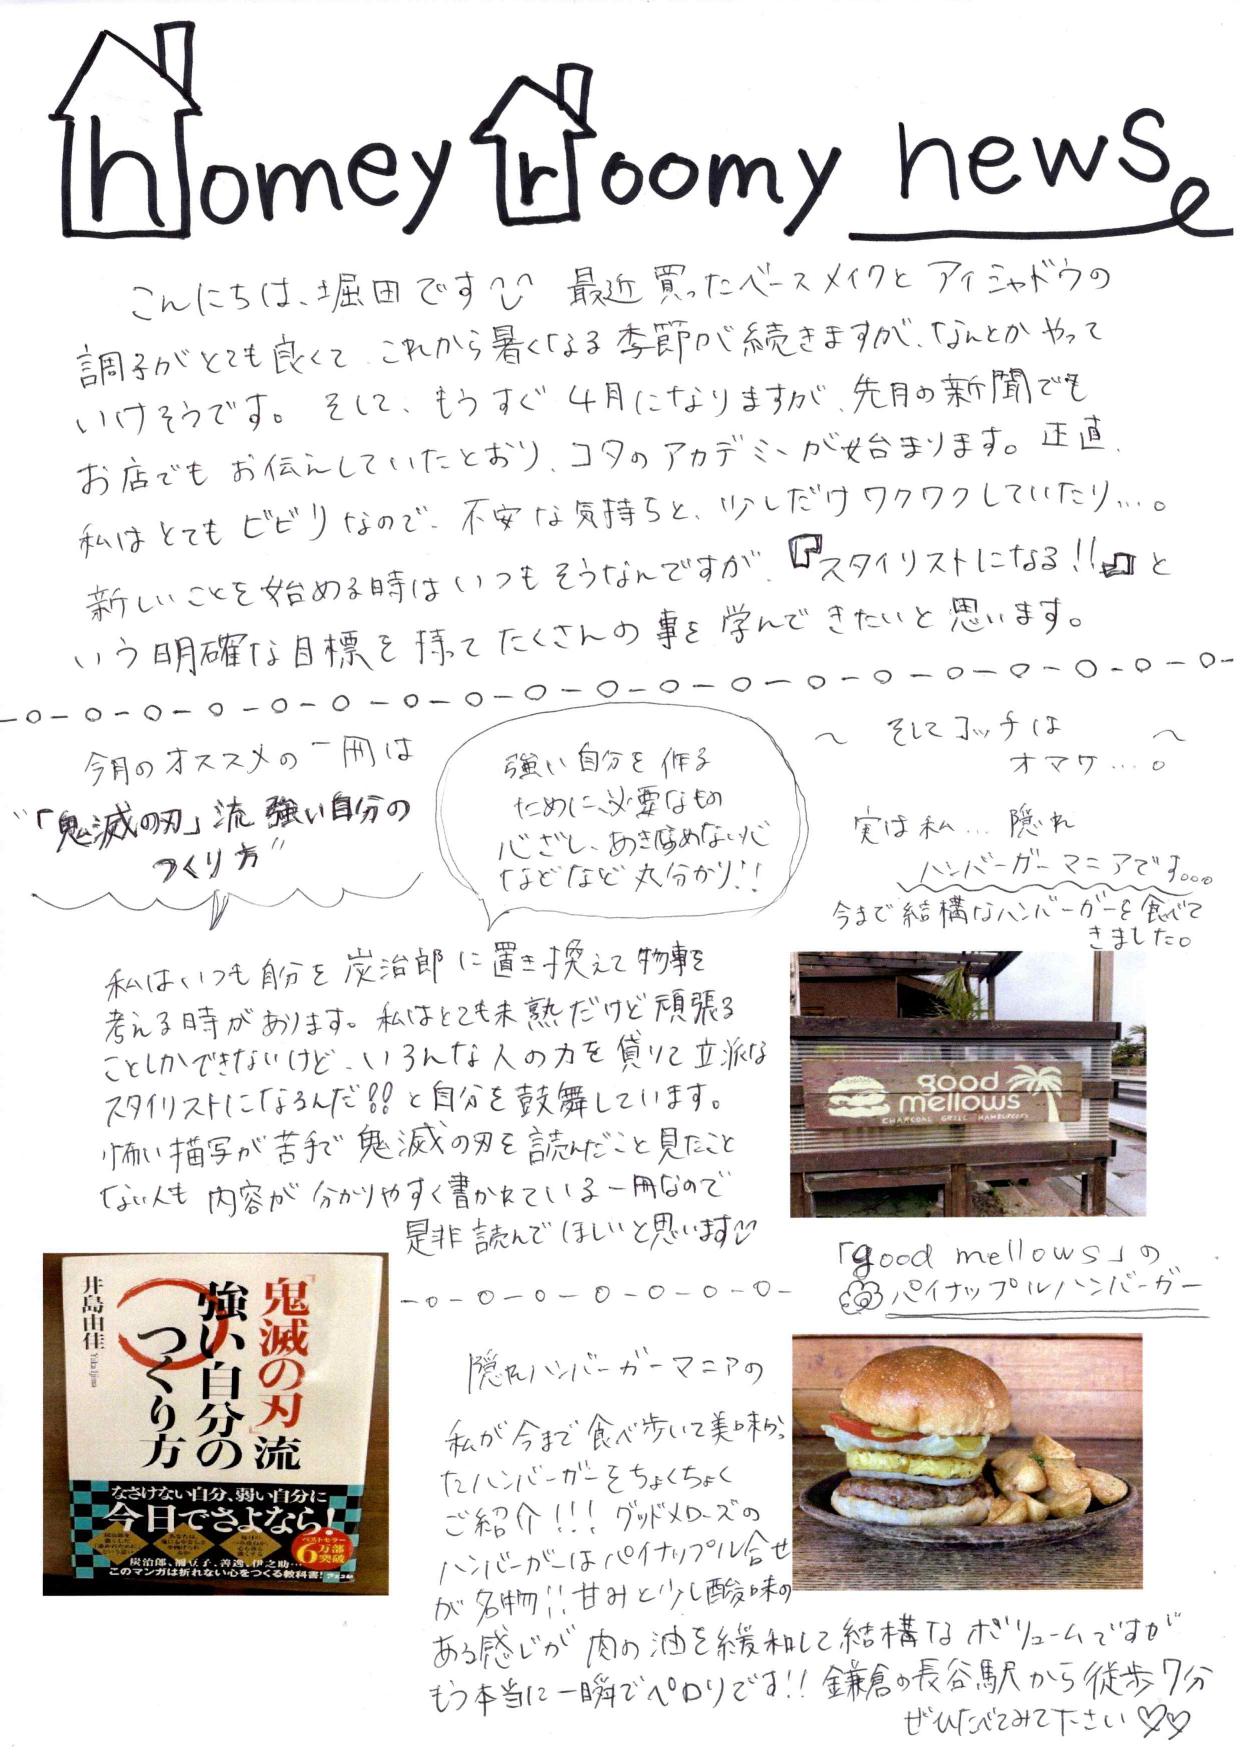 homey roomy news
こんにちは、堀田です 最近買ったベースメイクとアイシャドウの
調子がとても良くて、これから暑くなる季節が続きますが、なんとかやって
いけそうです。そして、もうすぐ4月になりますが、先月の新聞でも
お店でもお伝えしていたとおり、コタのアカデミーが始まります。正直、
私はとてもビビリなので、不安な気持ちと、少しだけワクワクしていたり…。
新しいことを始める時はいつもそうなんですが、『スタイリストになる!!』と
いう明確な目標を持ってたくさんの事を学んできたいと思います。
今月のオススメの一冊は
"「鬼滅の刃」流 強い自分の
つくり方"
強い自分を作る
ために、必要なもの
心ざし、あきらめない心
などなど丸分かり!!
私はいつも自分を炭治郎に置き換えて物事を
考える時があります。私はとても未熟だけど頑張る
ことしかできないけど、いろんな人の力を貸りて立派な
スタイリストになるんだ!!と自分を鼓舞しています。
怖い描写が苦手で鬼滅の刃を読んだこと見たこと
ない人も内容が分かりやすく書かれている一冊なので
是非読んでほしいと思います
井島由佳
Yuka Iijima
『鬼滅の刃』流
強い自分の
つくり方
なさけない自分、弱い自分に
今日でさよなら!
ベストセラー
6万部
突破
炭治郎、禰豆子、善逸、伊之助…
このマンガは折れない心をつくる教科書!
アスコム
〜 そしてコッチは 〜
オマケ…。
実は私…隠れ
ハンバーガーマニアです。。。
今まで結構なハンバーガーを食べて
きました。
good
mellows
CHARCOAL GRILL HAMBURGERS
「good mellows」の
パイナップルハンバーガー
隠れハンバーガーマニアの
私が今まで食べ歩いて美味かっ
たハンバーガーをちょくちょく
ご紹介!!!グッドメローズの
ハンバーガーはパイナップル合せ
が名物!!甘みと少し酸味の
ある感じが肉の油を緩和して結構なボリュームですが
もう本当に一瞬でペロリです!!鎌倉の長谷駅から徒歩7分
ぜひたべてみて下さい♡♡